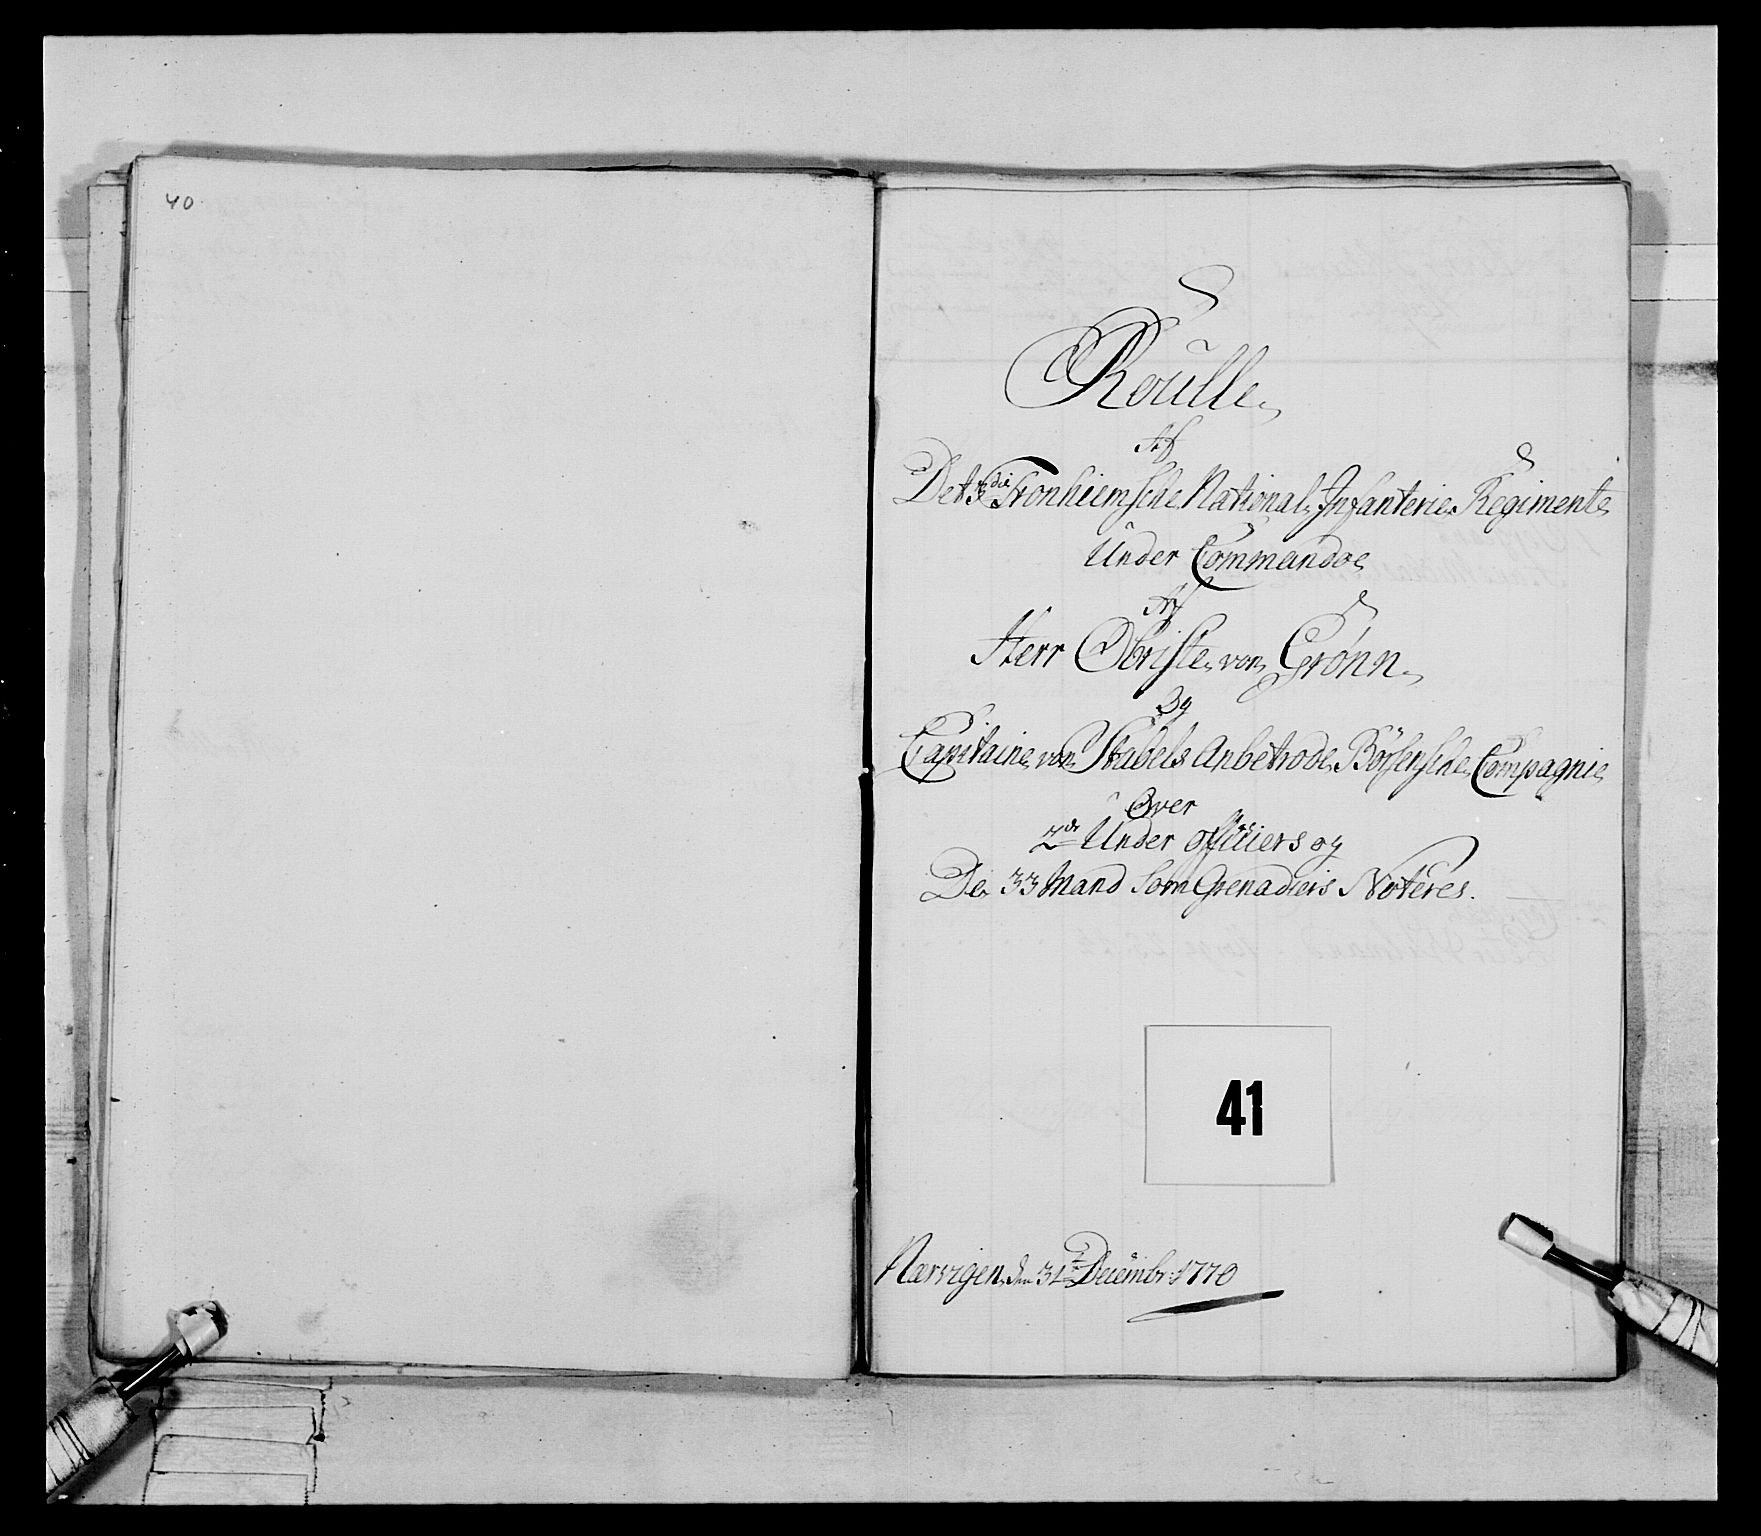 40
Roulle
Af
Det 3die Tronhiemsche National Infanterie Regimente
Under Commandoe
Af
Herr Obriste von Grønn
Og
Capitaine von Stabels Anbetrode Børsensche Compagnie
Over
2de Under officiers og
De 33 Mand Som Grenadiers Noteres.
41
Narvigen den 31te Decembr: 1770